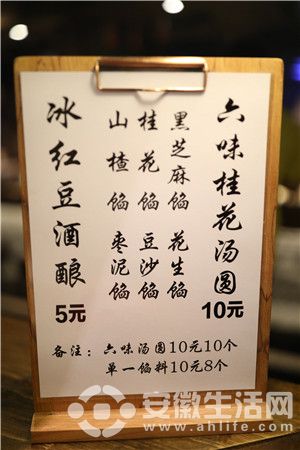 六味桂花汤圆
10元
黑芝麻馅 花生馅
桂花馅 豆沙馅
山楂馅 枣泥馅
冰红豆酒酿
5元
备注：六味汤圆10元10个
单一馅料10元8个
安徽生活网
www.ahlife.com